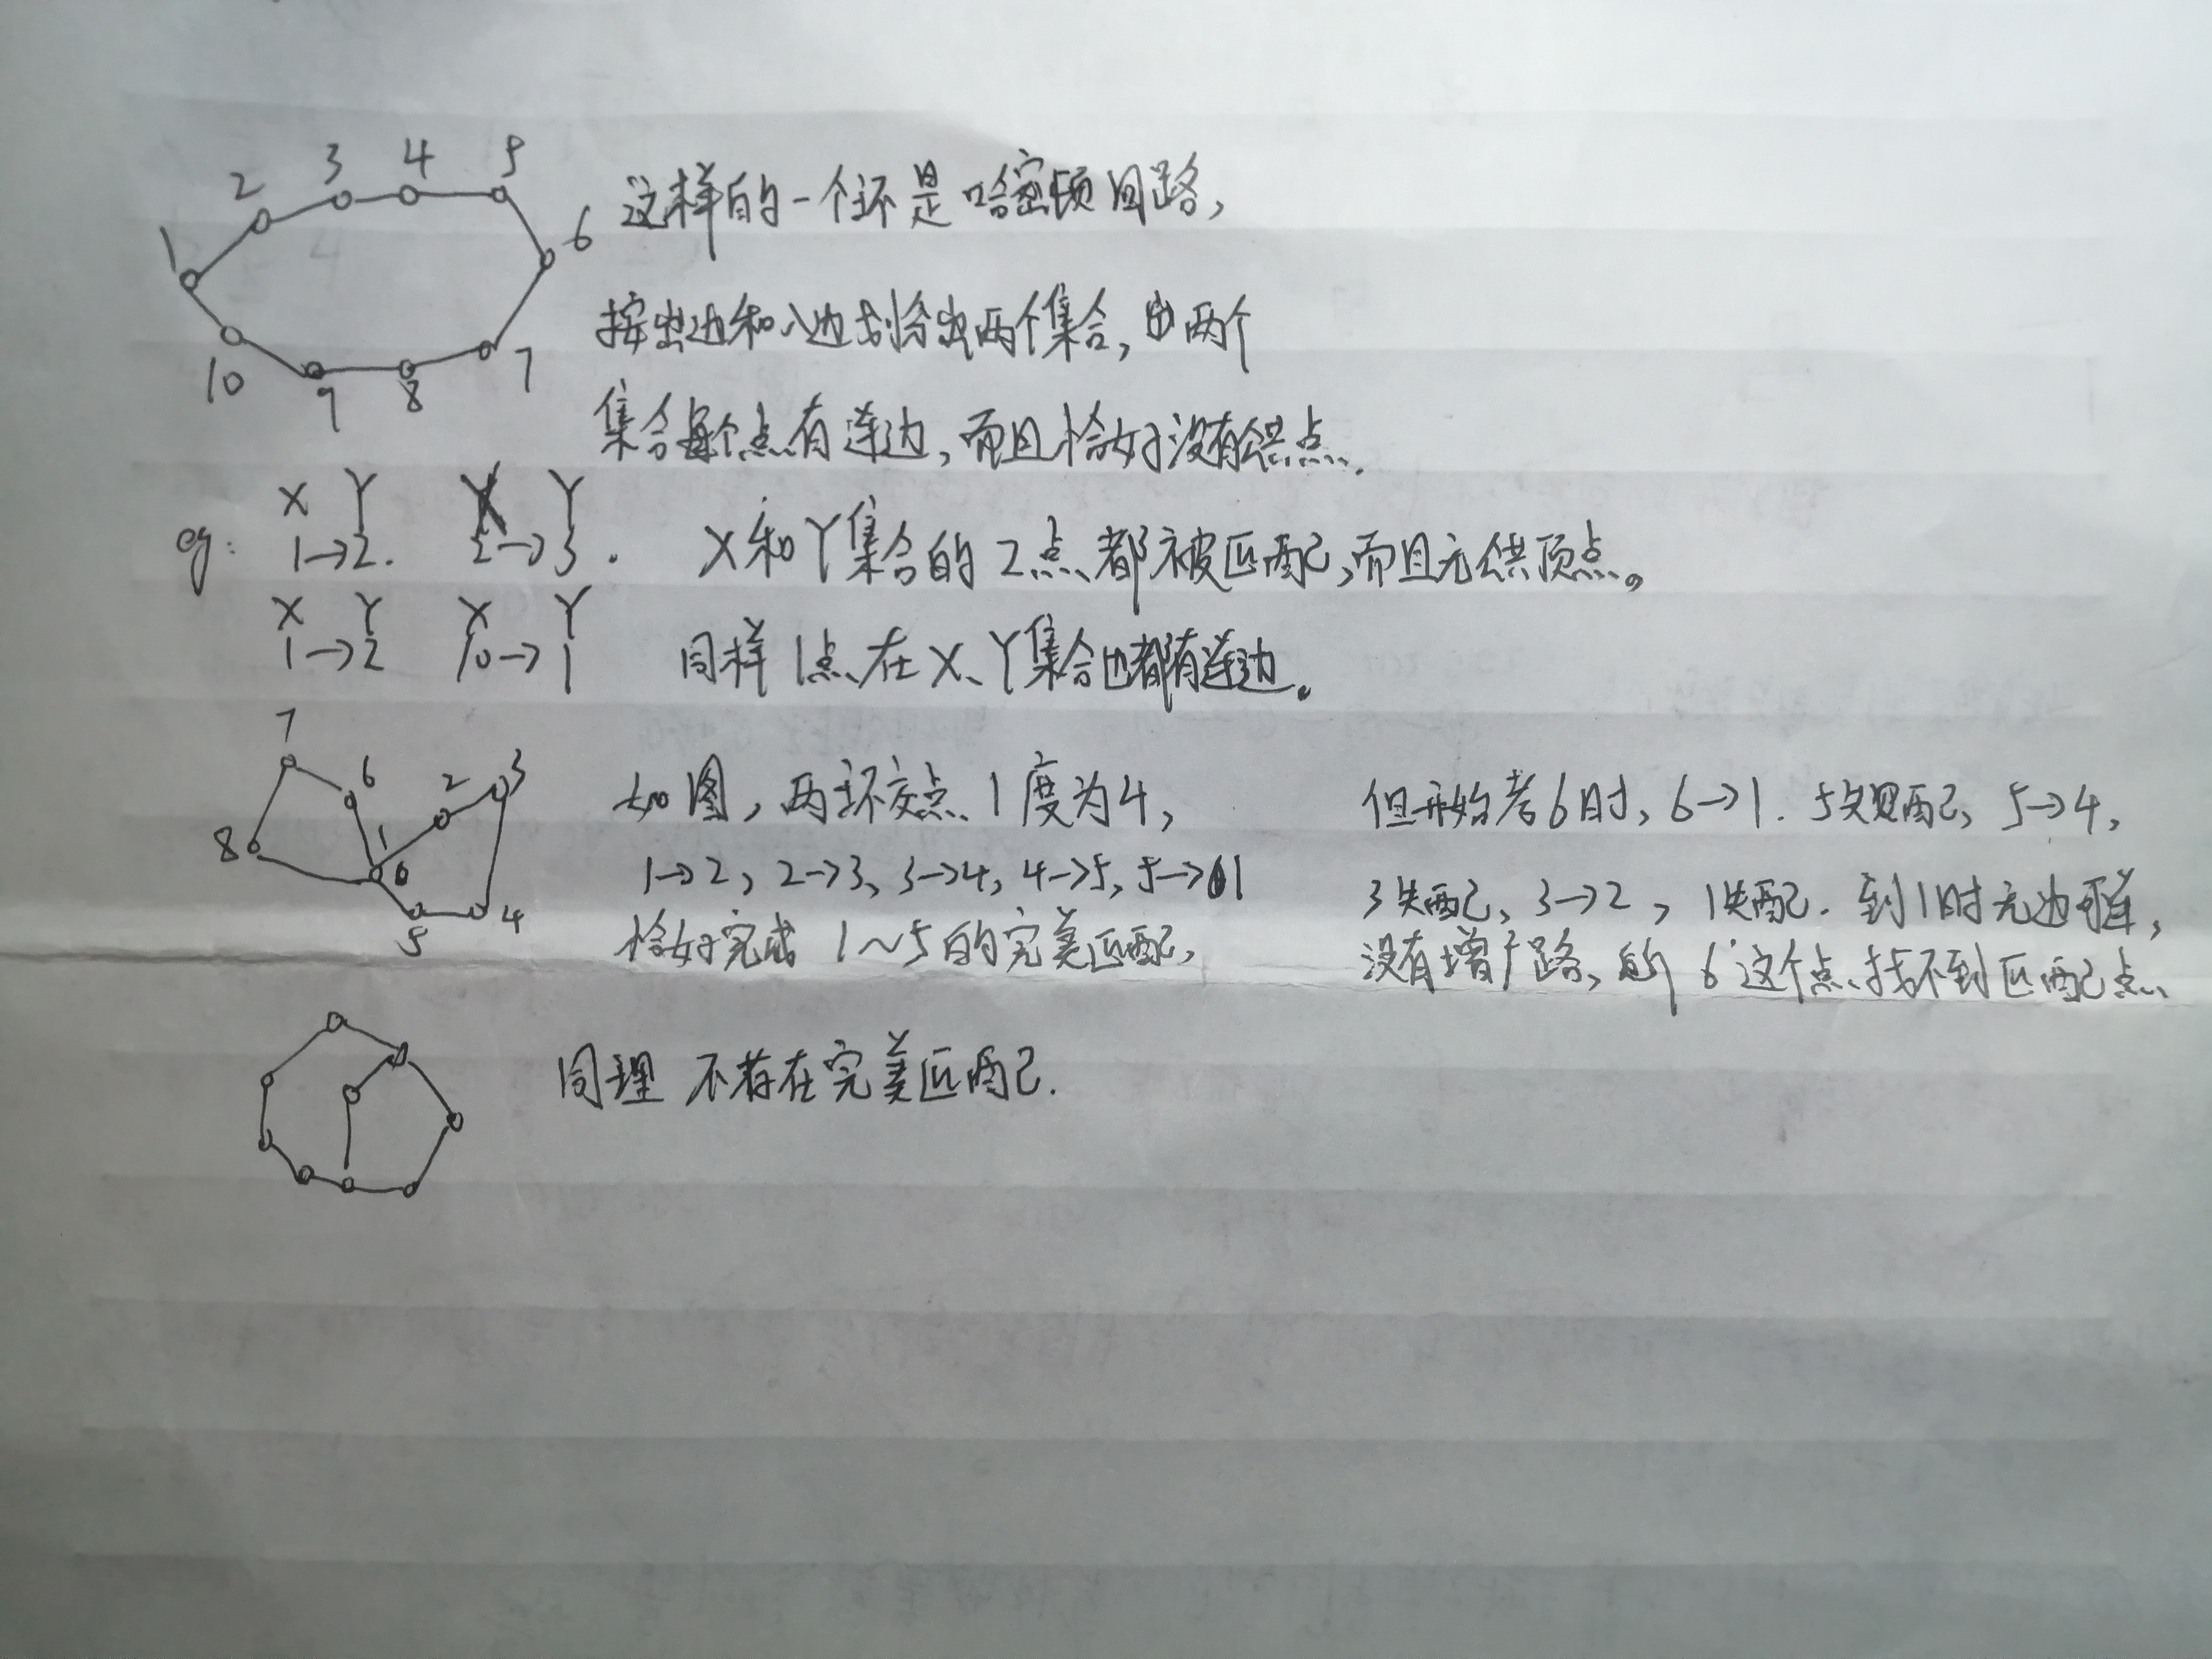 1 2 3 4 5 6 7 8 9 10
这样的一个环是哈密顿回路,
按出边和入边划分出两个集合,由两个
集合每个点有连边,而且恰好没有公共点.
eg: X Y X Y
1→2. 2→3. X和Y集合的2点都被匹配,而且无公共顶点。
X Y X Y
1→2 10→1 同样1点在X、Y集合也都有连边。
7 6 2 3 8 1 5 4
如图,两环交点1度为4,
1→2, 2→3, 3→4, 4→5, 5→1
恰好完成 1~5的完美匹配,
但开始考6时, 6→1. 5失配, 5→4,
3失配, 3→2, 1失配. 到1时无边可连,
没有增广路, 6这个点找不到匹配点
同理 不存在完美匹配.